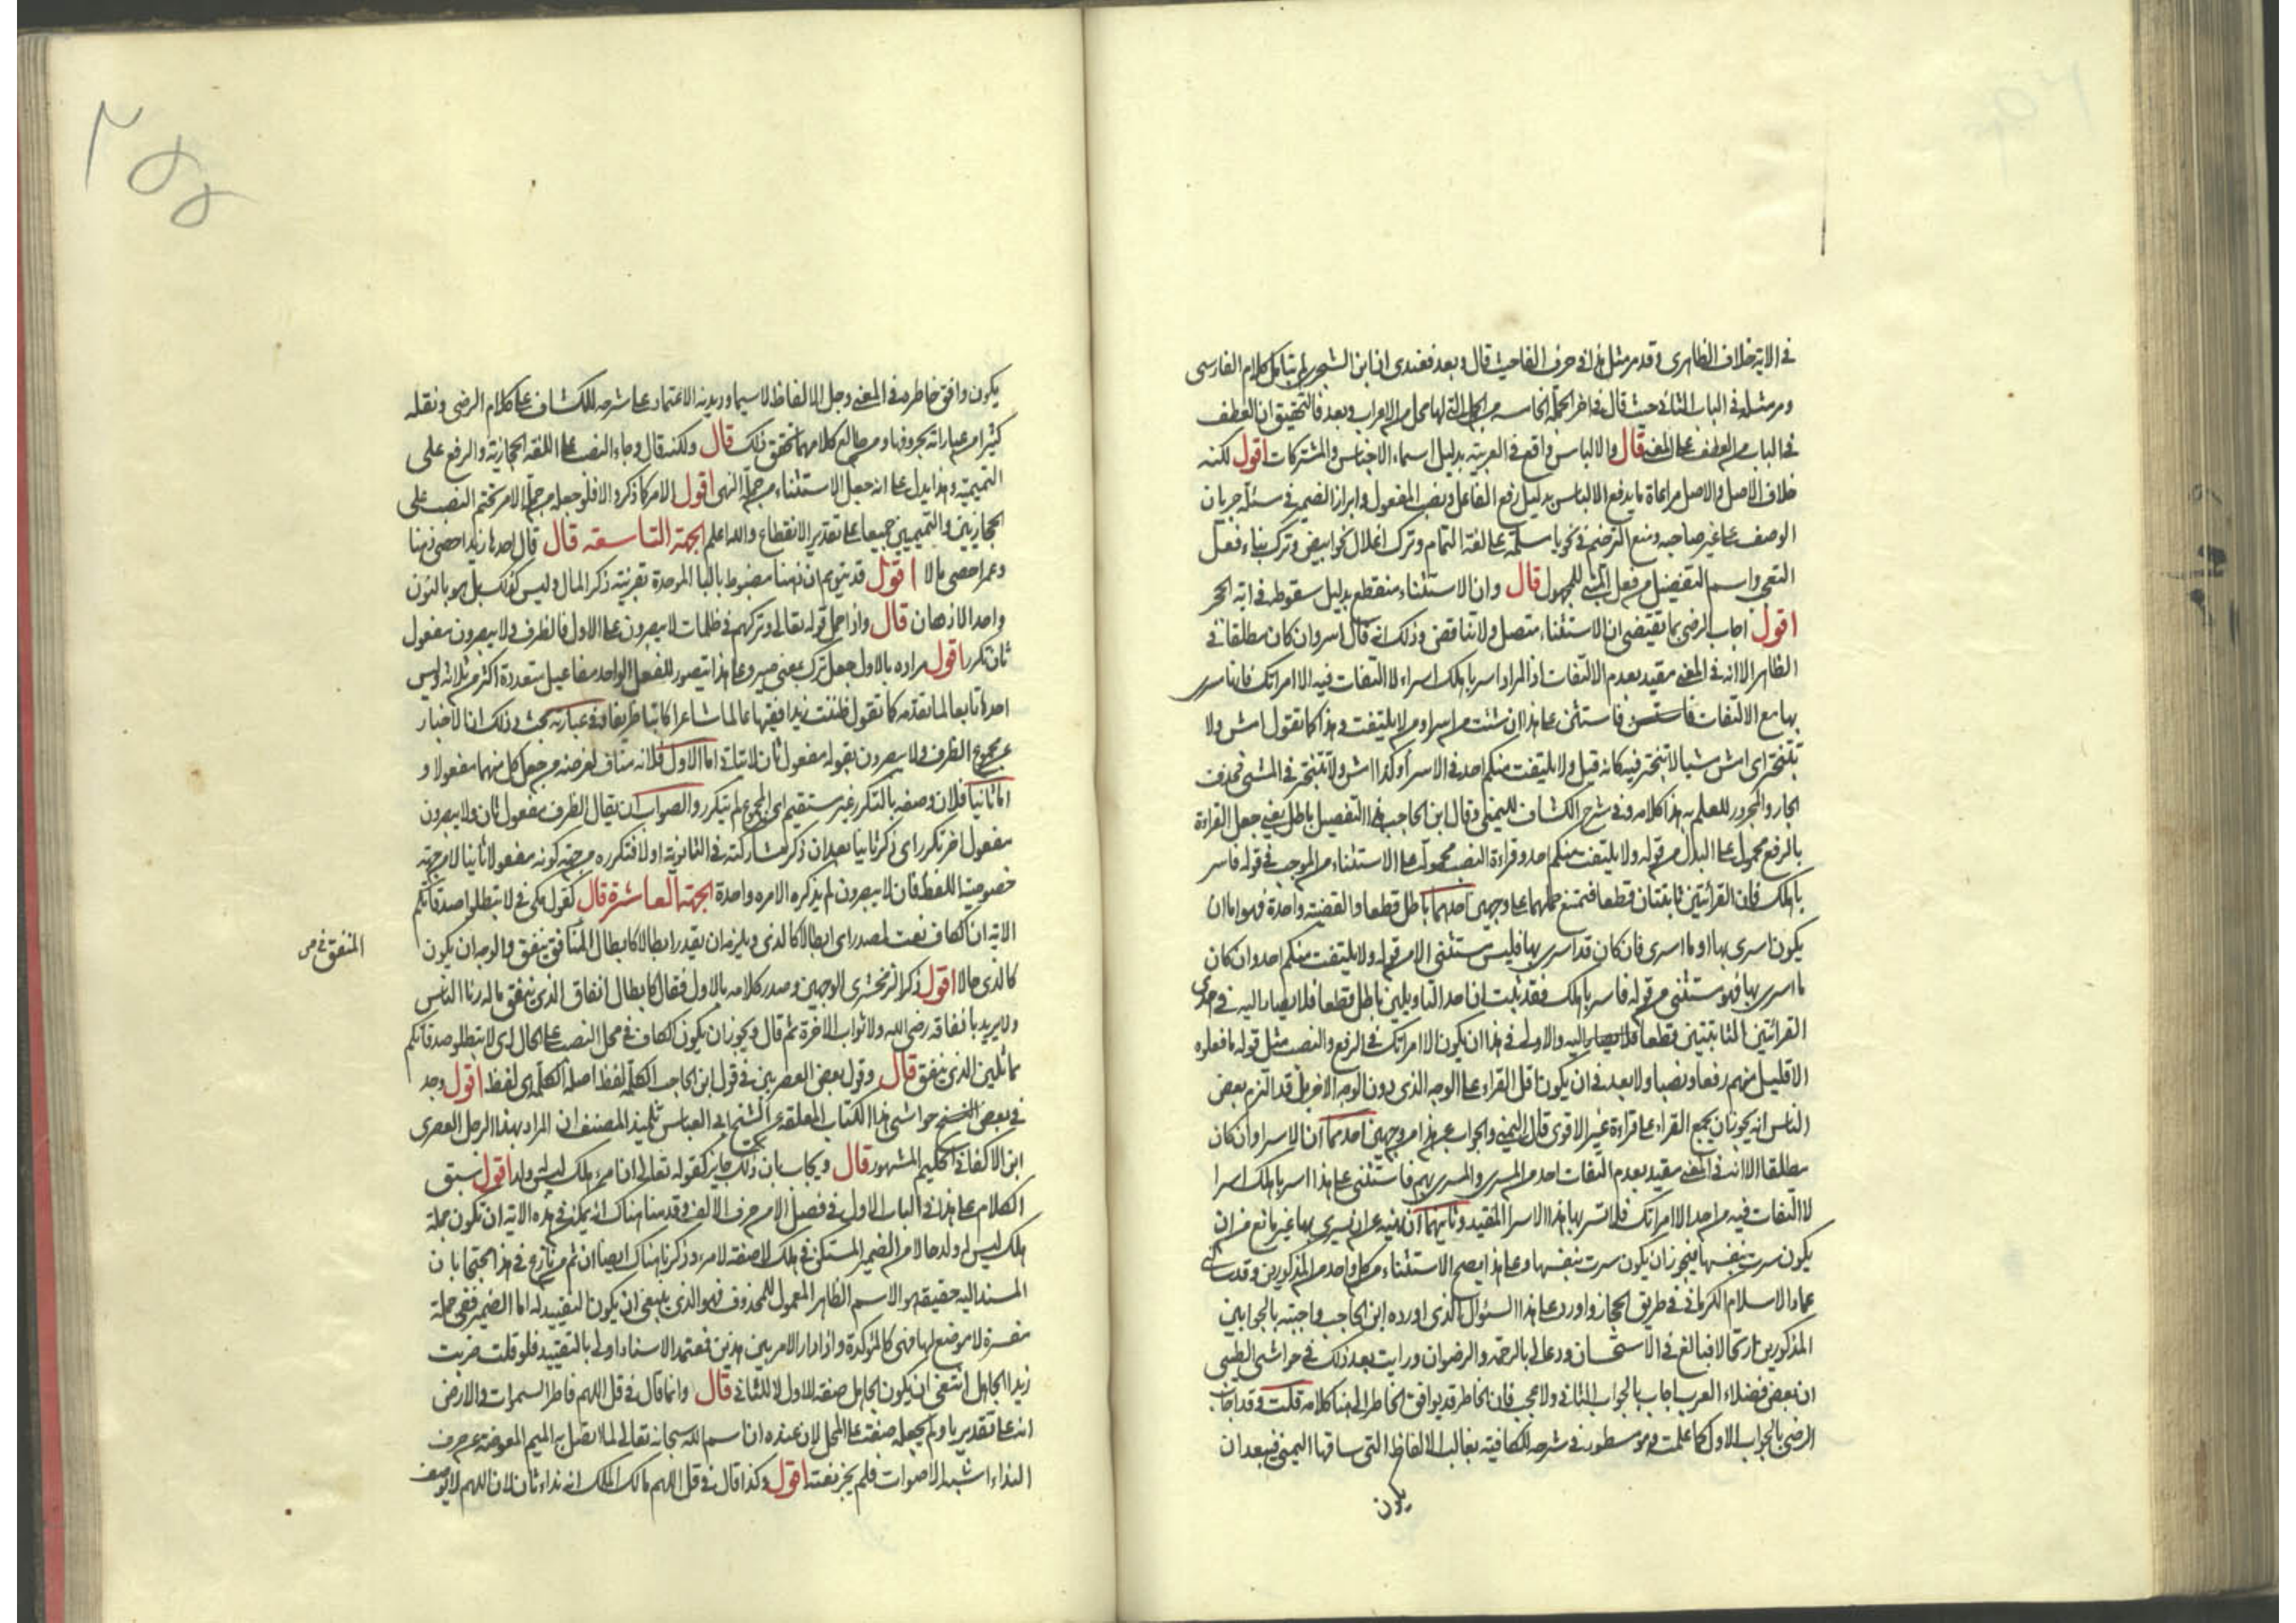 في الاية خلاف الظاهرى وقد مر مثل هذا في حرف الفا حيث قال وبعد فعندى ان ابن الشجرى لم يتامل كلام الفارسى
ومر مثله في الباب الثانى حيث قال في اخر الجملة الخامسة من الجمل التى لها محل من الاعراب وبعد فالتحقيق ان العطف
في الباب من العطف على المعنى قال والالباس واقع في العربية بدليل اسماء الاجناس والمشتركات اقول لكنه
خلاف الاصل والاصل مراعاة ما يدفع الالباس بدليل رفع الفاعل ونصب المفعول وابراز الضمير في مسئلة جريان
الوصف على غير صاحبه ومنع الترخيم في نحو يا مسلمة على لغة التمام وترك اعلال نحو ابيض وترك بناء فعل
التعجب واسم التفضيل من فعل المبنى للمجهول قال وان الاستثناء منقطع بدليل سقوطه في اية الحجر
اقول اجاب الرضى بما يقتضى ان الاستثناء متصل ولا تناقض وذلك انه قال اسر وان كان مطلقا في
الظاهر الا انه في المعنى مقيد بعدم الالتفات اذ المراد اسر باهلك اسراء لا التفات فيه الا امراتك فانك تسرى
بها مع الالتفات فاستثنى على هذا ان شئت من اسر او من لا يلتفت وهذا كما تقول امش ولا
تتبختر اى امش مشيا لا تبختر فيه فكانه قيل ولا يلتفت منكم احد في الاسراء وكذا امش ولا تتبختر في المشى فحذف
الجار والمجرور للعلم به هذا كلامه وفى شرح الكشاف لليمنى وقال ابن الحاجب هذا التفصيل باطل يعنى جعل القراءة
بالرفع محمولة على البدل من قوله ولا يلتفت منكم احد وقراءة النصب محمولة على الاستثناء من الموجب في قوله فاسر
باهلك فان القرائتين ثابتتان قطعا فيمتنع حملهما على وجهين احدهما باطل قطعا والقضية واحدة فهو اما ان
يكون اسرى بها او ما اسرى فان كان قد اسرى بها فليس مستثنى الا من قوله ولا يلتفت منكم احد وان كان
ما اسرى بها فهو مستثنى من قوله فاسر باهلك فقد ثبت ان احد التاويلين باطل قطعا فلا يصار اليه في احدى
القرائتين الثابتتين قطعا والاولى في هذا ان يكون الا امراتك في الرفع والنصب مثل قوله ما فعلوه
الا قليل منهم رفعا ونصبا ولا بعد في ان يكون اقل القراء على الوجه الذى دون الوجه الاخر بل قد التزم بعض
الناس انه يجوز ان يجمع القراء على قراءة غير الاقوى قال اليمنى والجواب عن هذا من وجهين احدهما ان الاسرا وان كان
مطلقا الا انه في المعنى مقيد بعدم التفات احد من المسرى والمسرى بهم فاستثنى على هذا اسر باهلك اسرا
لا التفات فيه من احد الا امراتك فلا تسر بها هذا الاسرا المقيد وثانيهما ان نهيه عن ان يسرى بها غير مانع من ان
يكون سرت بنفسها فيجوز ان يكون سرت بنفسها وعلى هذا يصح الاستثناء من كل واحد من المذكورين وقد سالنى
عماد الاسلام الكرمانى في طريق الحجاز واورد على هذا السئوال الذى اورده ابن الحاجب واجبته بالجوابين
المذكورين ارتجالا فبالغ في الاستحسان ودعا لى بالرحمة والرضوان ورايت بعد ذلك في حواشى الطيبى
ان بعض فضلاء العرب اجاب بالجواب الثانى ولا عجب فان الخاطر قد يوافق الخاطر الى هنا كلامه قلت وقد اجاب
الرضى بالجواب الاول كما علمت وهو مسطور في شرحه للكافية بغالب الالفاظ التى ساقها اليمنى فيبعد ان
يكون
يكون وافق خاطره في المعنى وجل الالفاظ لا سيما وديدنه الاعتماد على شرحه للكشاف على كلام الرضى ونقله
كثيرا من عباراته بحروفها ومن طالع كلامهما تحقق ذلك قال ولكنه قال وجاء النصب على اللغة الحجازية والرفع على
التميمية وهذا يدل على انه جعل الاستثناء من جملة النهى اقول الامر كما ذكر والا فلو جعله من جملة الامر لتحتم النصب على
الحجازيين والتميميين جميعا على تقدير الانقطاع والله اعلم الجهة التاسعة قال قال احدها زيد احصى ذهنا
وعمرا حصى مالا اقول قد يتوهم ان ذهنا مضبوط بالبا الموحدة بقرينة ذكر المال وليس كذلك بل هو بالنون
واحد الاذهان قال واذا حمل قوله تعالى وتركهم في ظلمات لا يبصرون على الاول فالظرف ولا يبصرون مفعول
ثان تكرر اقول مراده بالاول جعل ترك بمعنى صير وعلى هذا يتصور للفعل الواحد مفاعيل متعددة اكثر من ثلاثة وليس
احدها تابعا لما تقدمه كما تقول ظننت زيدا فقيها عالما شاعرا كاتبا ظريفا وفى عبارته بحث وذلك ان الاخبار
عن مجموع الظرف ولا يبصرون بقوله مفعول ثان لا يتاتى اما الاول فلانه مناف لغرضه من جعل كل منهما مفعولا و
اما ثانيا فلان وصفه بالتكرر غير مستقيم اى المجموع لم يتكرر والصواب ان يقال الظرف مفعول ثان ولا يبصرون
مفعول اخر تكرر اى ذكر ثانيا بعد ان ذكر مشاركته في الثانوية اولا فتكرره من جهة كونه مفعولا ثانيا لا من جهة
خصوصية اللفظ فان لا يبصرون لم يذكره الا مرة واحدة الجهة العاشرة قال كقول مكى في لا تبطلوا صدقاتكم
الاية ان الكاف نعت لمصدر اى ابطالا كالذى ويلزمه ان يقدر ابطالا كابطال المنافق ينفق والوجه ان يكون
المنفق في س
كالذى حالا اقول ذكر الزمخشرى الوجهين وصدر كلامه بالاول فقال كابطال انفاق الذى ينفق ماله رئا الناس
ولا يريد بانفاقه رضى الله ولا ثواب الاخرة ثم قال ويجوز ان يكون الكاف في محل النصب على الحال اى لا تبطلو صدقاتكم
مماثلين الذى ينفق قال وقول بعض العصريين في قول ابن الحاجب الكلمة لفظ اصله الكلمة هى لفظ اقول وجد
في بعض النسخ حواشى هذا الكتاب المعلقة عن الشيخ ابى العباس تلميذ المصنف ان المراد بهذا الرجل العصرى
ابن الاكفانى الحكيم المشهور قال ويجاب بان ذلك جايز كقوله تعالى ان امرء هلك ليس له ولد اقول سبق
الكلام على هذا في الباب الاول في فصل الا من حرف الالف وقدمنا هناك انه يمكن في هذه الاية ان تكون جملة
هلك ليس له ولد حالا من الضمير المستكن في هلك لا صفة لامرء وذكرنا هناك ايضا ان ثم من نازع في هذا محتجا بان
المسند اليه حقيقة هو الاسم الظاهر المعمول للمحذوف فهو الذى ينبغى ان يكون التقييد له اما الضمير ففى جملة
مفسرة لا موضع لها فهى كالمؤكدة واذا دار الامر بين هذين فمعتمد الاسناد اولى بالتقييد فلو قلت ضربت
زيدا الجاهل انتفى ان يكون الجاهل صفة للاول لا للثانى قال وانما قال في قل اللهم فاطر السموات والارض
انه على تقدير يا ولم يجعله صفة على المحل لان عنده ان اسم الله سبحانه تعالى لما اتصل به الميم المعوضة عن حرف
النداء اشبه الاصوات فلم يجز نعته اقول وكذا قال في قل اللهم مالك الملك انه نداء ثان لان اللهم لا يوصف